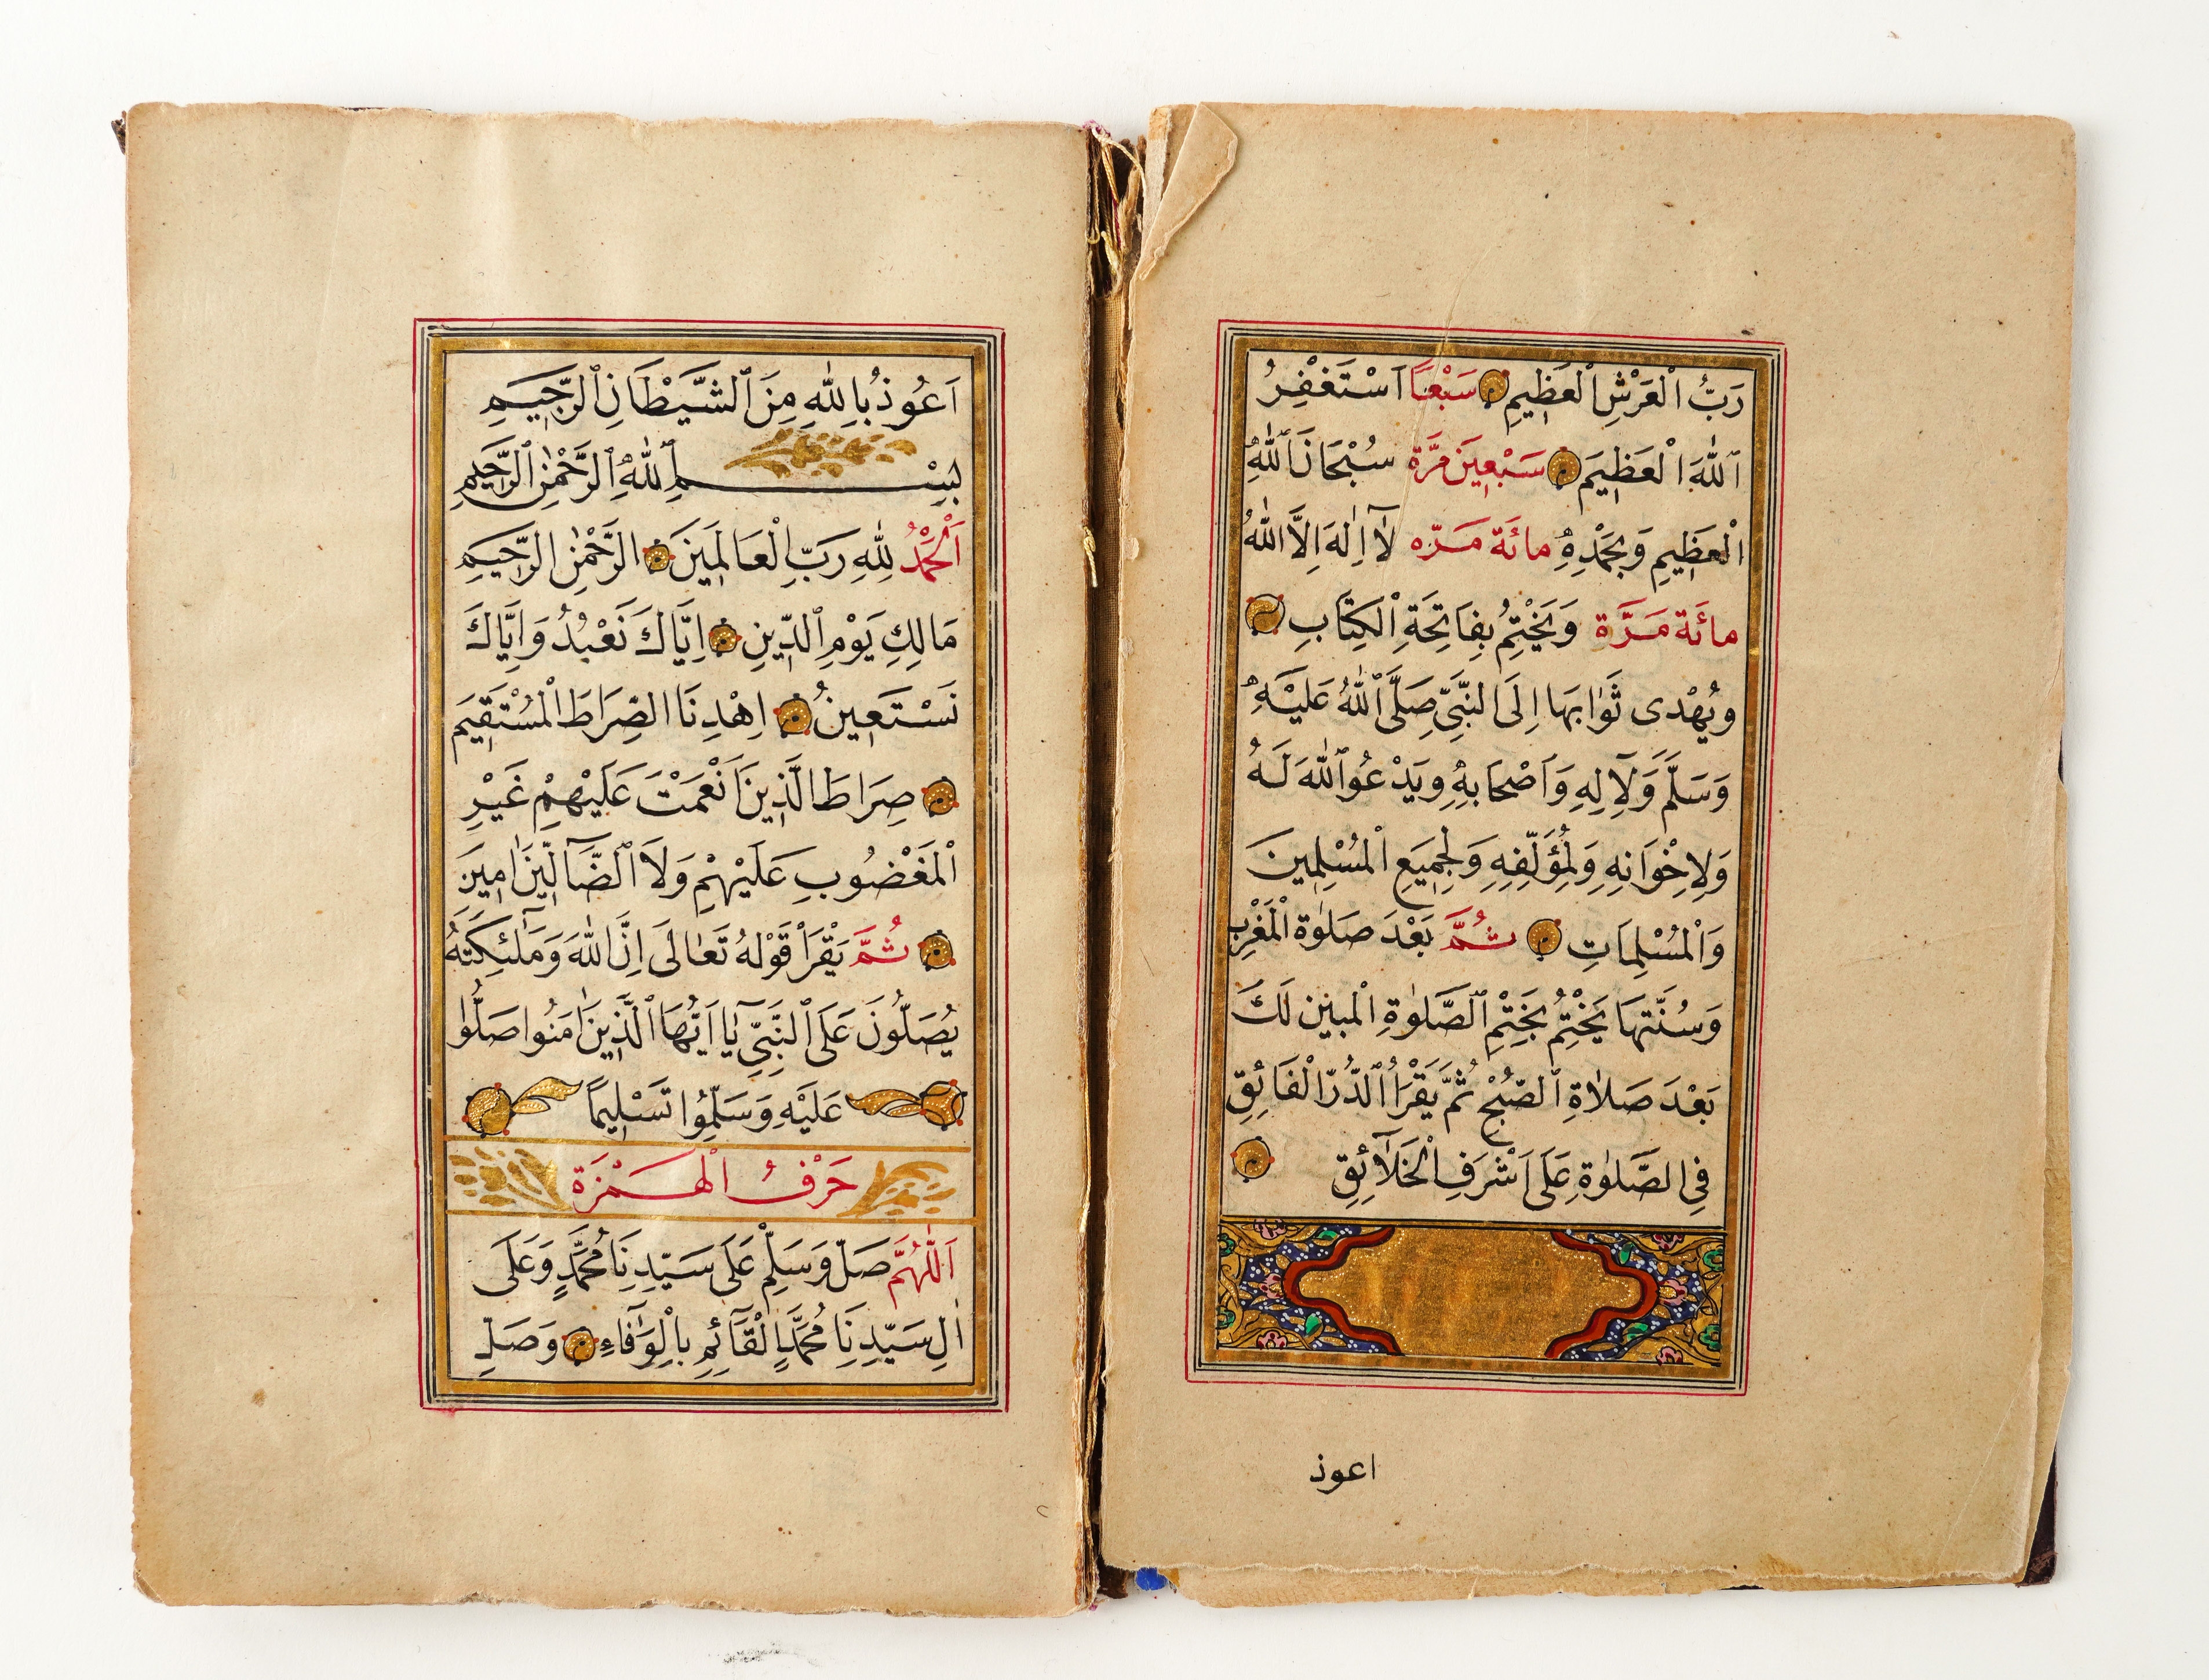 رَبُّ الْعَرْشِ الْعَظِيمِ سَبْعًا اَسْتَغْفِرُ
اللّٰهَ الْعَظِيمَ سَبْعِينَ مَرَّة سُبْحَانَ اللّٰهِ
الْعَظِيمِ وَبِحَمْدِهِ مائَة مَرّه لَآ اِلٰهَ اِلَّا اللّٰهُ
مائَة مَرَّة وَيَخْتِمُ بِفَاتِحَةِ الْكِتَابِ
ويُهْدى ثَوَابهَا اِلَى النَّبِيِّ صَلَّى اللّٰهُ عَلَيْهِ
وَسَلَّمَ وَلِآلِهِ وَاَصْحَابِهِ وِيَدْعُو اللّٰهَ لَهُ
وَلِاِخْوَانِهِ وَلِمُؤَلِّفِهِ وَلِجَمِيعِ الْمُسْلِمِينَ
وَالْمُسْلِمَاتِ ثُمَّ بَعْدَ صَلوٰة الْمَغْرِبِ
وَسُنَّتِهَا يَخْتِمُ بِخَتْمِ الصَّلوٰةِ الْمبين لَكَ
بَعْدَ صَلَاةِ الصُّبْحِ ثُمَّ يَقْرَأُ الدُّرّ الْفَائِقِ
فِي الصَّلوٰةِ عَلَى اَشْرَفِ الْخَلَآئِقِ
اعوذ
اَعُوذُ بِاللّٰهِ مِنَ الشَّيْطَانِ الرَّجِيمِ
بِسْمِ اللّٰهِ الرَّحْمٰنِ الرَّحِيمِ
اَلْحَمْدُ لِلّٰهِ رَبِّ الْعَالَمِينَ الرَّحْمٰنِ الرَّحِيمِ
مَالِكِ يَوْمِ الدِّينِ اِيَّاكَ نَعْبُدُ وَاِيَّاكَ
نَسْتَعِينُ اِهْدِنَا الصِّرَاطَ الْمُسْتَقِيمَ
صِرَاطَ الَّذِينَ اَنْعَمْتَ عَلَيْهِمْ غَيْرِ
الْمَغْضُوبِ عَلَيْهِمْ وَلَا الضَّآلِّينَ اٰمِينَ
ثُمَّ يَقْرَأْ قَوْلهُ تَعَالٰى اِنَّ اللّٰهَ وَمَلٰٓئِكَتَهُ
يُصَلُّونَ عَلَى النَّبِيِّ يَآ اَيُّهَا الَّذِينَ اٰمَنُوا صَلُّوا
عَلَيْهِ وَسَلِّمُوا تَسْلِيمًا
حَرْفُ الْهَمْزَة
اَللّٰهُمَّ صَلِّ وَسَلِّمْ عَلَى سَيِّدِنَا مُحَمَّدٍ وَعَلَى
اٰلِ سَيِّدِنَا مُحَمَّدٍ الْقَآئِمِ بِالْوَفَآءِ وَصَلِّ